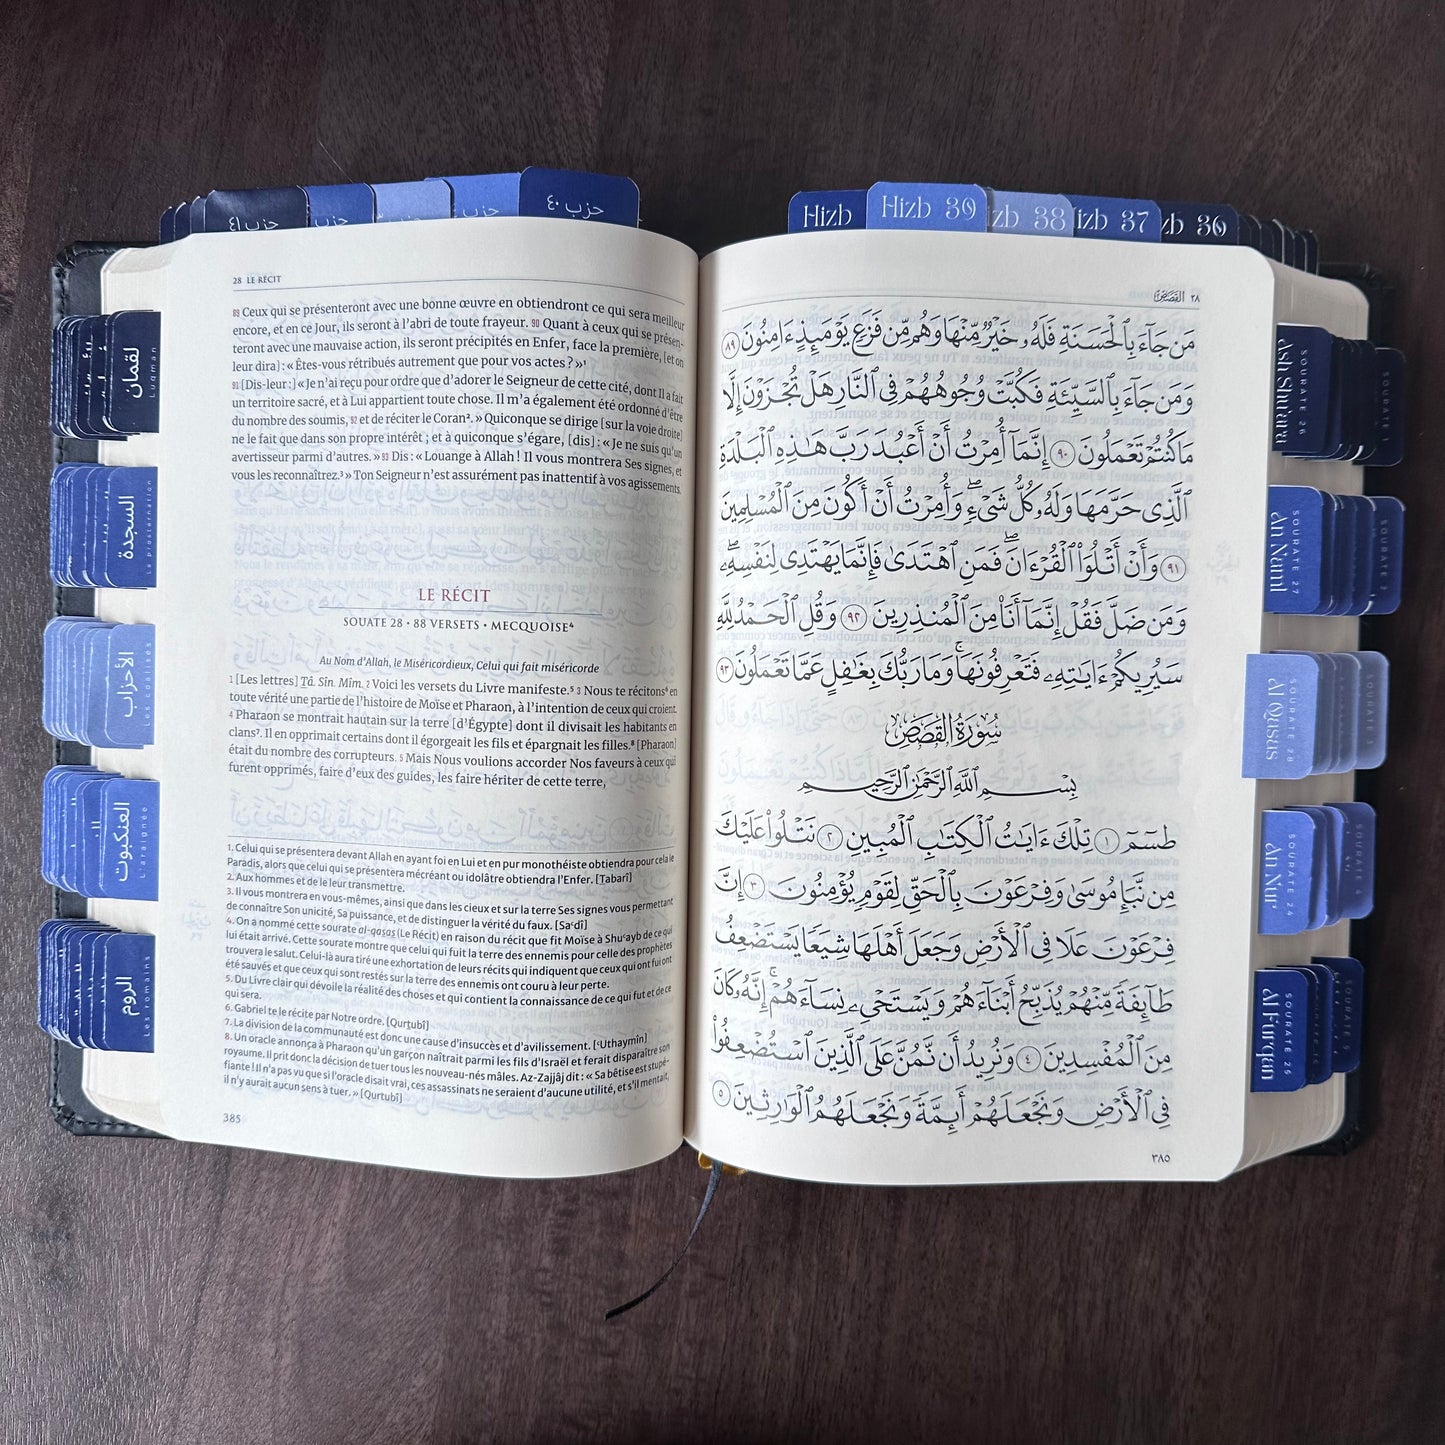 حزب ٤١
حزب
حزب
حزب
حزب ٤٠
Hizb
Hizb 39
zb 38
izb 37
zb 36
28 LE RÉCIT
89 Ceux qui se présenteront avec une bonne œuvre en obtiendront ce qui sera meilleur
encore, et en ce Jour, ils seront à l'abri de toute frayeur. 90 Quant à ceux qui se présen-
teront avec une mauvaise action, ils seront précipités en Enfer, face la première, [et on
leur dira] : « Êtes-vous rétribués autrement que pour vos actes ? »¹
91 [Dis-leur :] « Je n'ai reçu pour ordre que d'adorer le Seigneur de cette cité, dont Il a fait
un territoire sacré, et à Lui appartient toute chose. Il m'a également été ordonné d'être
du nombre des soumis, 92 et de réciter le Coran². » Quiconque se dirige [sur la voie droite]
ne le fait que dans son propre intérêt ; et à quiconque s'égare, [dis] : « Je ne suis qu'un
avertisseur parmi d'autres. » 93 Dis : « Louange à Allah ! Il vous montrera Ses signes, et
vous les reconnaîtrez.³ » Ton Seigneur n'est assurément pas inattentif à vos agissements.
LE RÉCIT
SOUATE 28 • 88 VERSETS • MECQUOISE⁴
Au Nom d'Allah, le Miséricordieux, Celui qui fait miséricorde
1 [Les lettres] Tâ. Sîn. Mîm. 2 Voici les versets du Livre manifeste.⁵ 3 Nous te récitons⁶ en
toute vérité une partie de l'histoire de Moïse et Pharaon, à l'intention de ceux qui croient.
4 Pharaon se montrait hautain sur la terre [d'Égypte] dont il divisait les habitants en
clans⁷. Il en opprimait certains dont il égorgeait les fils et épargnait les filles.⁸ [Pharaon]
était du nombre des corrupteurs. 5 Mais Nous voulions accorder Nos faveurs à ceux qui
furent opprimés, faire d'eux des guides, les faire hériter de cette terre,
1. Celui qui se présentera devant Allah en ayant foi en Lui et en pur monothéiste obtiendra pour cela le
Paradis, alors que celui qui se présentera mécréant ou idolâtre obtiendra l'Enfer. [Ṭabarî]
2. Aux hommes et de le leur transmettre.
3. Il vous montrera en vous-mêmes, ainsi que dans les cieux et sur la terre Ses signes vous permettant
de connaître Son unicité, Sa puissance, et de distinguer la vérité du faux. [Saʿdî]
4. On a nommé cette sourate al-qaṣaṣ (Le Récit) en raison du récit que fit Moïse à Shuʿayb de ce qui
lui était arrivé. Cette sourate montre que celui qui fuit la terre des ennemis pour celle des prophètes
trouvera le salut. Celui-là aura tiré une exhortation de leurs récits qui indiquent que ceux qui ont fui ont
été sauvés et que ceux qui sont restés sur la terre des ennemis ont couru à leur perte.
5. Du Livre clair qui dévoile la réalité des choses et qui contient la connaissance de ce qui fut et de ce
qui sera.
6. Gabriel te le récite par Notre ordre. [Qurṭubî]
7. La division de la communauté est donc une cause d'insuccès et d'avilissement. [ʿUthaymîn]
8. Un oracle annonça à Pharaon qu'un garçon naîtrait parmi les fils d'Israël et ferait disparaître son
royaume. Il prit donc la décision de tuer tous les nouveau-nés mâles. Az-Zajjâj dit : « Sa bêtise est stupé-
fiante ! Il n'a pas vu que si l'oracle disait vrai, ces assassinats ne seraient d'aucune utilité, et s'il mentait,
il n'y aurait aucun sens à tuer. » [Qurṭubî]
385
٢٨ القصص
مَن جَآءَ بِٱلْحَسَنَةِ فَلَهُۥ خَيْرٌ مِّنْهَا وَهُم مِّن فَزَعٍ يَوْمَئِذٍ ءَامِنُونَ ٨٩
وَمَن جَآءَ بِٱلسَّيِّئَةِ فَكُبَّتْ وُجُوهُهُمْ فِى ٱلنَّارِ هَلْ تُجْزَوْنَ إِلَّا
مَا كُنتُمْ تَعْمَلُونَ ٩٠ إِنَّمَآ أُمِرْتُ أَنْ أَعْبُدَ رَبَّ هَٰذِهِ ٱلْبَلْدَةِ
ٱلَّذِى حَرَّمَهَا وَلَهُۥ كُلُّ شَىْءٍ ۖ وَأُمِرْتُ أَنْ أَكُونَ مِنَ ٱلْمُسْلِمِينَ
٩١ وَأَنْ أَتْلُوَا۟ ٱلْقُرْءَانَ ۖ فَمَنِ ٱهْتَدَىٰ فَإِنَّمَا يَهْتَدِى لِنَفْسِهِۦ ۖ
وَمَن ضَلَّ فَقُلْ إِنَّمَآ أَنَا۠ مِنَ ٱلْمُنذِرِينَ ٩٢ وَقُلِ ٱلْحَمْدُ لِلَّهِ
سَيُرِيكُمْ ءَايَٰتِهِۦ فَتَعْرِفُونَهَا ۚ وَمَا رَبُّكَ بِغَٰفِلٍ عَمَّا تَعْمَلُونَ ٩٣
سُورَةُ القَصَصِ
بِسْمِ ٱللَّهِ ٱلرَّحْمَٰنِ ٱلرَّحِيمِ
طسٓمٓ ١ تِلْكَ ءَايَٰتُ ٱلْكِتَٰبِ ٱلْمُبِينِ ٢ نَتْلُوا۟ عَلَيْكَ
مِن نَّبَإِ مُوسَىٰ وَفِرْعَوْنَ بِٱلْحَقِّ لِقَوْمٍ يُؤْمِنُونَ ٣ إِنَّ
فِرْعَوْنَ عَلَا فِى ٱلْأَرْضِ وَجَعَلَ أَهْلَهَا شِيَعًا يَسْتَضْعِفُ
طَآئِفَةً مِّنْهُمْ يُذَبِّحُ أَبْنَآءَهُمْ وَيَسْتَحْىِۦ نِسَآءَهُمْ ۚ إِنَّهُۥ كَانَ
مِنَ ٱلْمُفْسِدِينَ ٤ وَنُرِيدُ أَن نَّمُنَّ عَلَى ٱلَّذِينَ ٱسْتُضْعِفُوا۟
فِى ٱلْأَرْضِ وَنَجْعَلَهُمْ أَئِمَّةً وَنَجْعَلَهُمُ ٱلْوَٰرِثِينَ ٥
٣٨٥
لقمان
Luqman
السجدة
La prosternation
الأحزاب
Les coalisés
العنكبوت
L'araignée
الروم
Les romains
SOURATE 26
Ash Shu'ara
SOURATE 1
SOURATE 27
An Naml
SOURATE 28
Al Qasas
SOURATE 24
An Nur
SOURATE 25
Al Furqan